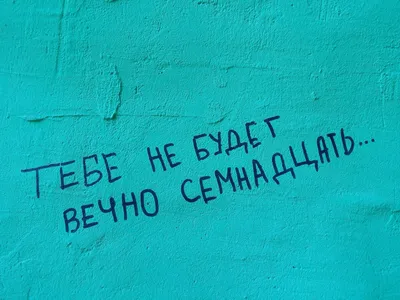 ТЕБЕ НЕ БУДЕТ
ВЕЧНО СЕМНАДЦАТЬ...